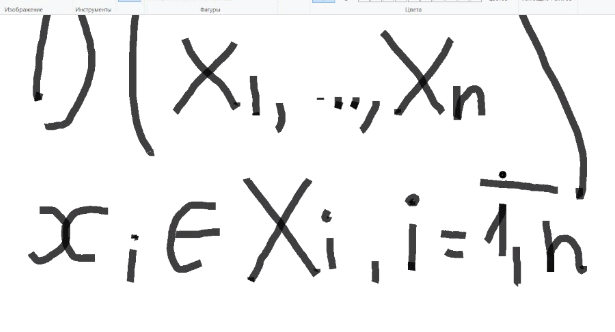 Изображение Инструменты Фигуры Цвета
) (X₁, ..., Xₙ)
xᵢ ∈ Xᵢ, i = 1,n